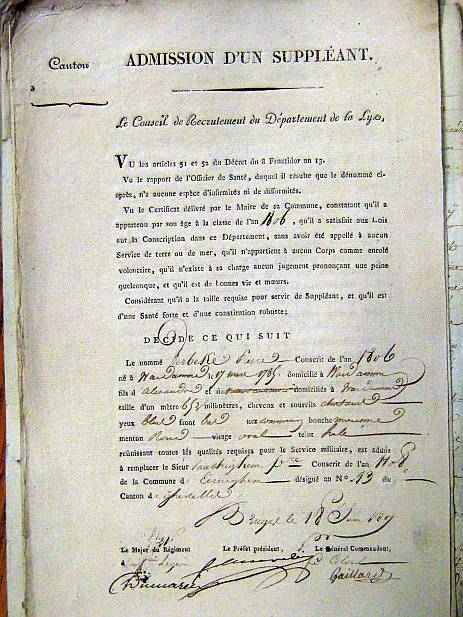 Canton
ADMISSION D'UN SUPPLÉANT.
Le Conseil de Recrutement du Département de la Lys,
VU les articles 51 et 52 du Décret du 8 Fructidor an 13.
Vu le rapport de l'Officier de Santé, duquel il résulte que le dénommé ci-
après, n'a aucune espèce d'infirmités ni de difformités.
Vu le Certificat délivré par le Maire de sa Commune, constatant qu'il a
appartenu par son âge à la classe de l'an 1806, qu'il a satisfait aux Lois
sur la Conscription dans ce Département, sans avoir été appellé à aucun
Service de terre ou de mer, qu'il n'appartient à aucun Corps comme enrolé
volontaire, qu'il n'existe à sa charge aucun jugement prononçant une peine
quelconque, et qu'il est de bonnes vie et mœurs.
Considérant qu'il a la taille requise pour servir de Suppléant, et qu'il est
d'une Santé forte et d'une constitution robuste;
DÉCIDE CE QUI SUIT
Le nommé Verbeke Pierre Conscrit de l'an 1806
né à Wardamme le 17 domicilié à Wardamme
fils d'Alexandre et de domiciliés à Wardamme
taille d'un mètre 652 milimètres, cheveux et sourcils
yeux bleu front bas nez bouche moyenne
menton Rond visage oval teint
réunissant toutes les qualités requises pour le Service militaire, est admis
à remplacer le Sieur Conscrit de l'an 1808
de la Commune d' désigné au N.° 13 du
Canton d'
Bruges le 18 Juin
Le Major du Régiment
Le Préfet président,
Le Général Commandant,
Gaillard